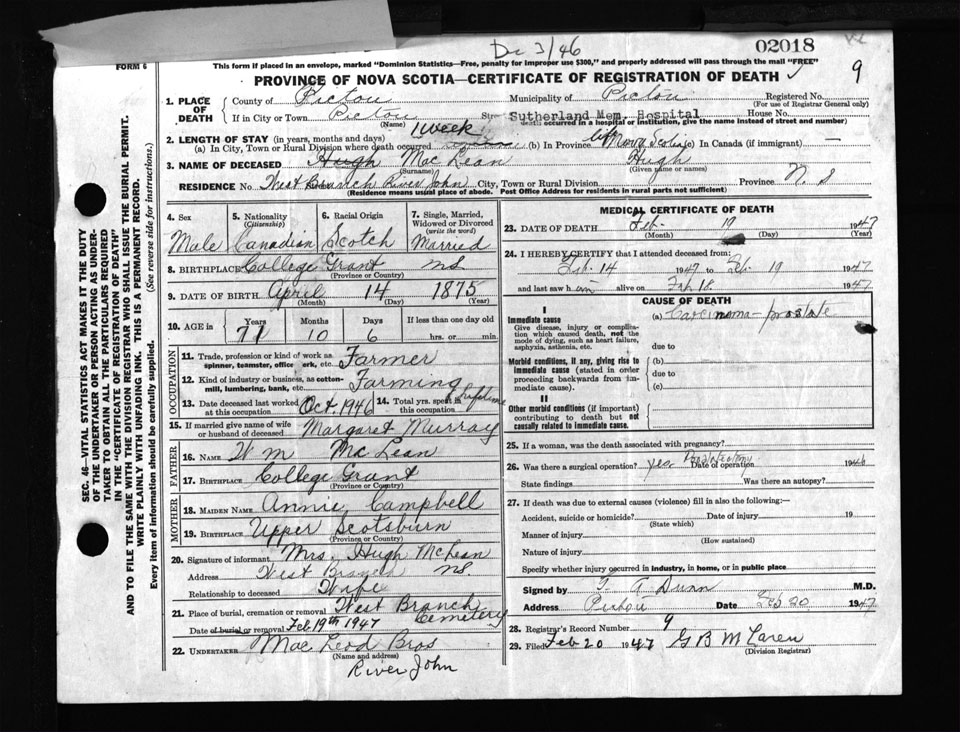 Dec 3/46
02018
FORM 6
This form if placed in an envelope, marked "Dominion Statistics—Free, penalty for improper use $300," and properly addressed will pass through the mail "FREE"
PROVINCE OF NOVA SCOTIA—CERTIFICATE OF REGISTRATION OF DEATH
9
1. PLACE OF DEATH
County of Pictou Municipality of Pictou Registered No.
(For use of Registrar General only)
If in City or Town Pictou Sutherland Mem. Hospital House No.
(Name) death occurred in a hospital or institution, give the name instead of street and number)
2. LENGTH OF STAY (in years, months and days) 1 week
(a) In City, Town or Rural Division where death occurred (b) In Province life Nova Scotia (c) In Canada (if immigrant) —
3. NAME OF DECEASED Hugh Mac Lean Hugh
(Surname) (Given name or names)
RESIDENCE No. West Branch River John City, Town or Rural Division Province N. S
(Residence means usual place of abode. Post Office Address for residents in rural parts not sufficient)
4. Sex 5. Nationality (Citizenship) 6. Racial Origin 7. Single, Married, Widowed or Divorced (write the word)
Male Canadian Scotch Married
8. BIRTHPLACE College Grant NS
(Province or Country)
9. DATE OF BIRTH April 14 1875
(Month) (Day) (Year)
10. AGE in Years Months Days If less than one day old
71 10 6 hrs. or min.
OCCUPATION
11. Trade, profession or kind of work as spinner, teamster, office clerk, etc. Farmer
12. Kind of industry or business, as cotton-mill, lumbering, bank, etc. Farming
13. Date deceased last worked at this occupation Oct. 1946 14. Total yrs. spent in this occupation lifetime
15. If married give name of wife or husband of deceased Margaret Murray
FATHER
16. NAME Wm McLean
17. BIRTHPLACE College Grant
(Province or Country)
MOTHER
18. MAIDEN NAME Annie Campbell
19. BIRTHPLACE Upper Scotsburn
(Province or Country)
20. Signature of informant Mrs. Hugh McLean
Address West Branch NS.
Relationship to deceased Wife
21. Place of burial, cremation or removal West Branch Cemetery
Date of burial or removal Feb. 19th 1947
22. UNDERTAKER Mac Leod Bros
(Name and address)
River John
MEDICAL CERTIFICATE OF DEATH
23. DATE OF DEATH Feb. 19 1947
(Month) (Day) (Year)
24. I HEREBY CERTIFY that I attended deceased from:
Feb. 14 1947 to Feb. 19 1947
and last saw him alive on Feb 18 1947
CAUSE OF DEATH
I
Immediate cause (a) Carcinoma - prostate
Give disease, injury or complication which caused death, not the mode of dying, such as heart failure, asphyxia, asthenia, etc.
due to
Morbid conditions, if any, giving rise to immediate cause (stated in order proceeding backwards from immediate cause).
(b)
due to
(c)
II
Other morbid conditions (if important) contributing to death but not causally related to immediate cause.
25. If a woman, was the death associated with pregnancy?
26. Was there a surgical operation? yes Prostatectomy Date of operation 1946
State findings Was there an autopsy?
27. If death was due to external causes (violence) fill in also the following:—
Accident, suicide or homicide? Date of injury 19
(State which)
Manner of injury
(How sustained)
Nature of injury
Specify whether injury occurred in industry, in home, or in public place
Signed by Dunn M.D.
Address Pictou Date Feb 20 1947
28. Registrar's Record Number 9
29. Filed Feb 20 1947 G B McLaren
(Division Registrar)
SEC. 46—VITAL STATISTICS ACT MAKES IT THE DUTY
OF THE UNDERTAKER OR PERSON ACTING AS UNDER-
TAKER TO OBTAIN ALL THE PARTICULARS REQUIRED
IN THE "CERTIFICATE OF REGISTRATION OF DEATH"
AND TO FILE THE SAME WITH THE DIVISION REGISTRAR WHO SHALL ISSUE THE BURIAL PERMIT.
WRITE PLAINLY WITH UNFADING INK. THIS IS A PERMANENT RECORD.
Every item of information should be carefully supplied. (See reverse side for instructions.)